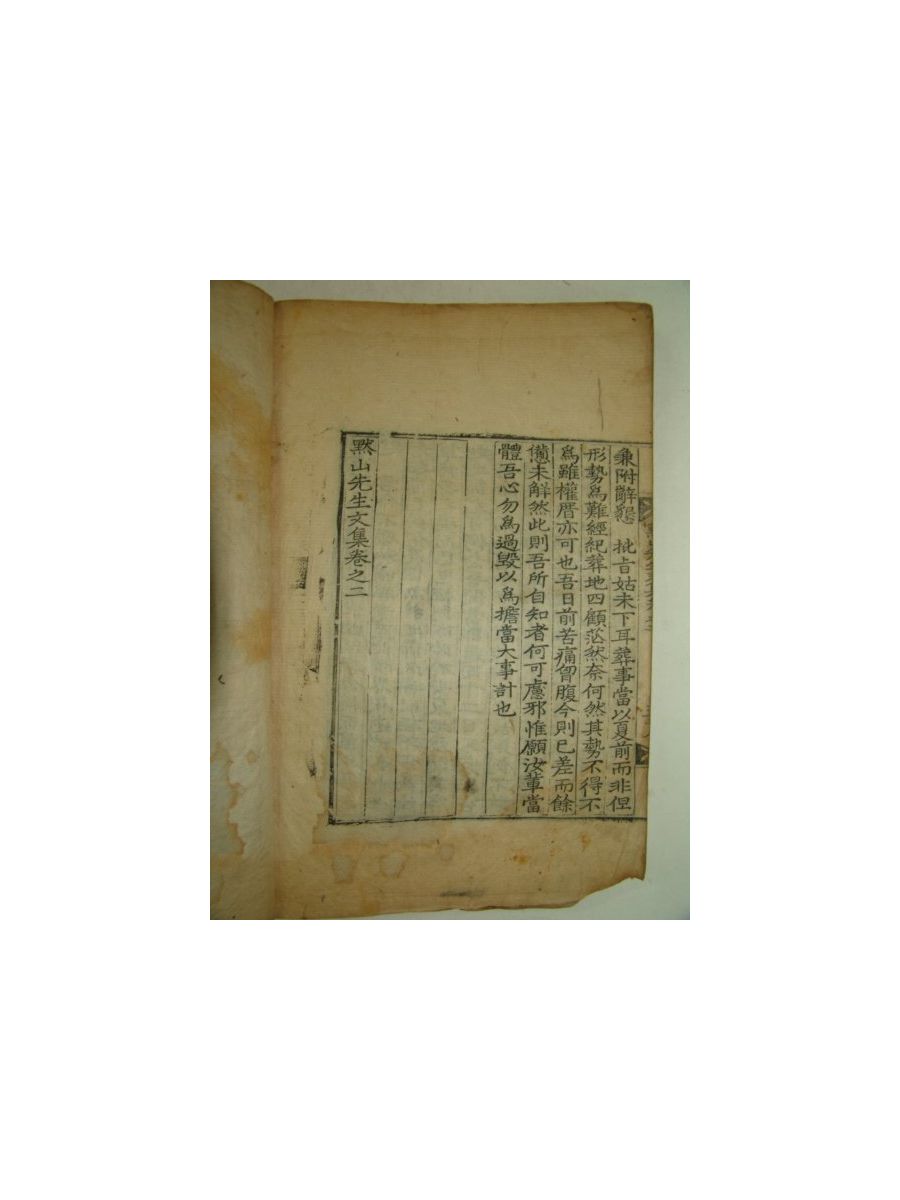 兼附辭懇 批旨姑未下耳葬事當以夏前而非但
形勢爲難經紀葬地四顧茫然奈何然其勢不得不
爲雖權厝亦可也吾日前苦痛曾腹今則已差而餘
憊未解然此則吾所自知者何可慮邪惟願汝軰當
體吾心勿爲過毀以爲擔當大事計也
黙山先生文集卷之二